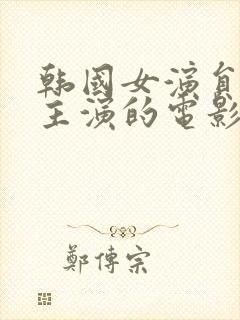 韩國女演員
主演的電影
鄭傳宗